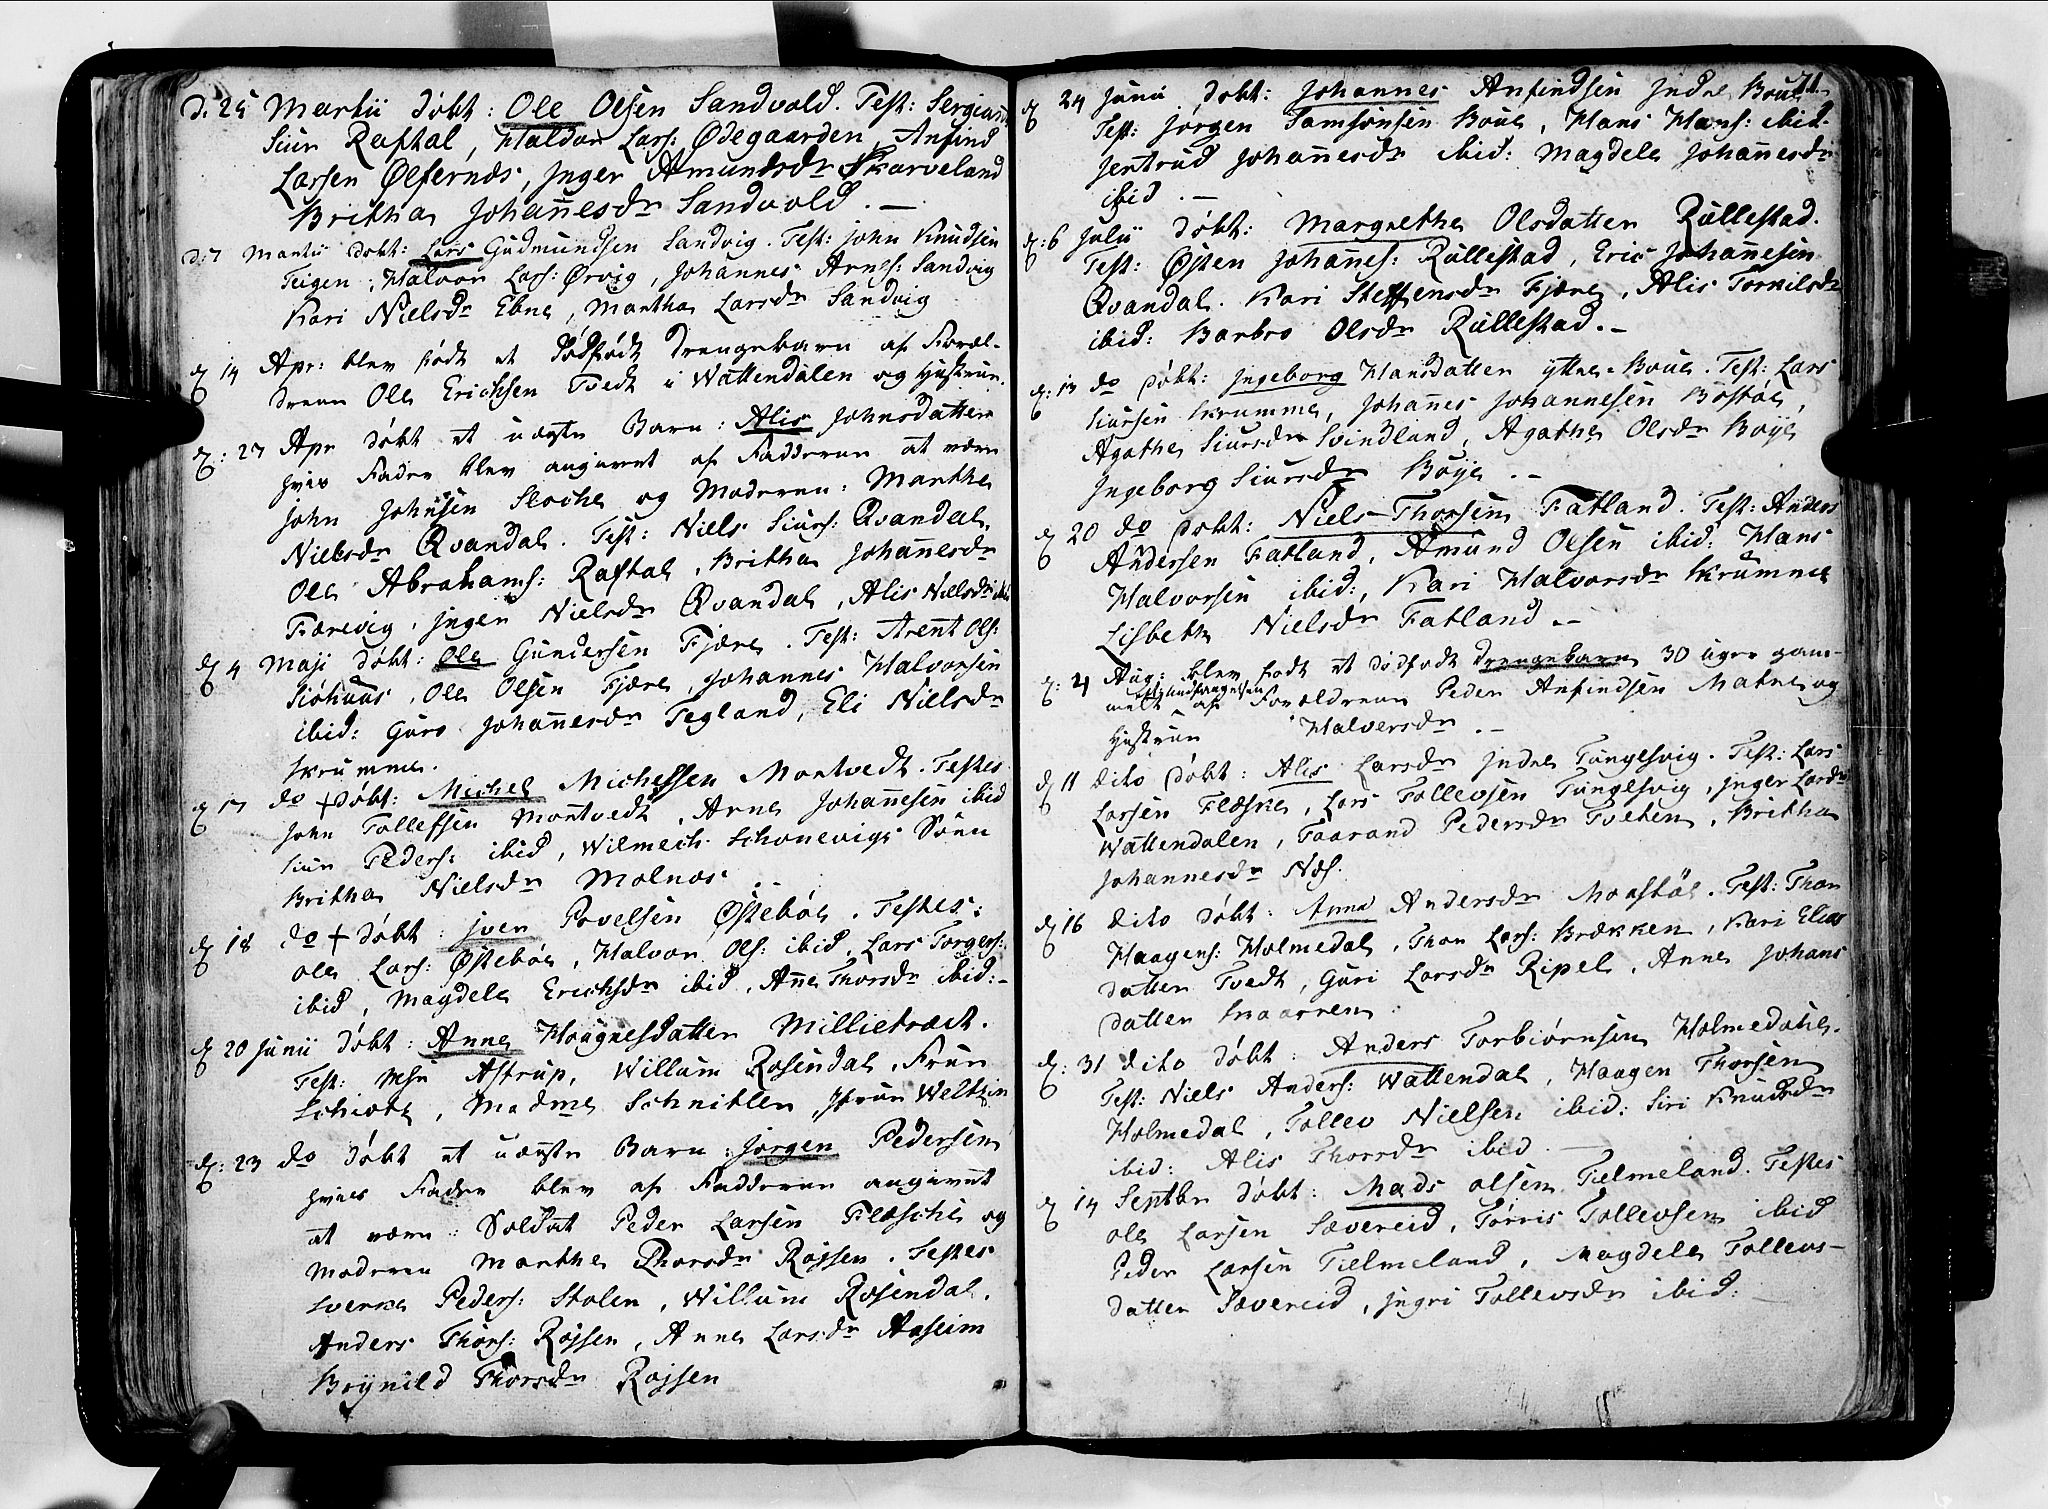 D. 25 Martii døbt: Ole Olsen Sandvold. Test: Sergiant
Siur Raftal, Haldor Lars: Ødegaarden, Anfind
Larsen Ølfernes, Inger Amundsdr Skarveland
Britha Johannesdr Sandvold. —
D: 7 Martii døbt: Lars Gudmundsen Sandvig. Test: John Knudsen
Teigen, Halvor Lars: Ørvig, Johannes Arnes: Sandvig
Kari Nielsdr Ebne, Martha Larsdr Sandvig
D 14 Apr: blev født et dødfødt drengebarn af Foræl-
drene Ole Erichsen Tvedt i Wattendalen og Hustrue.
D: 27 Apr døbt et uægte Barn: Alis Johnsdatter
hvis Fader blev angivet af Fadderne at være
John Johnsen Sloche og Moderen: Marthe
Nielsdr Qvandal. Test: Niels Siurs: Qvandal,
Ole Abrahams: Raftal, Britha Johannesdr
Færevig, Inger Nielsdr Qvandal, Alis Nielsdr ibid
D 4 Maji døbt: Ole Gundersen Fjære. Test: Arent Ols:
Siøhuus, Ole Olsen Fjære, Johannes Halvorsen
ibid: Guro Johannesdr Tegland, Eli Nielsdr
Skrumme.
D 17 do + døbt: Michel Michelsen Montvedt. Testes
John Tollefsen Montvedt, Arne Johannesen ibid
Siur Peders: ibid, Wilmech Schonevigs Sönn
Britha Nielsdr Molnæs.
D 18 do + døbt: Iver Povelsen Østebøe. Testes:
Ole Lars: Østebøe, Halvor Ols: ibid, Lars Torgers:
ibid, Magdele Erichsdr ibid, Anne Thorsdr ibid: -
D 20 Junii døbt: Anne Haugnesdatter Millietræet.
Test: Msr Astrup, Willum Rosendal, Frue
Schiøtz, Madme Schnitler, Jfrue Weltzin
D: 23 do døbt et uægte Barn: Jørgen Pedersen
hvis Fader blev af Fadderne angivet
at være: Soldat Peder Larsen Flæsche og
Moderen Marthe Thorsdr Røjsen. Testes
Sverke Peders: Stolen, Willum Rosendal,
Anders Thors: Røjsen, Anne Larsdr Aaseim
Brynild Thorsdr Røjsen
71
D 24 Junii døbt: Johannes Anfindsen Indre Boue
Test: Jørgen Samsonsen Boue, Hans Hans: ibid.
Jentrud Johannesdr ibid: Magdele Johannesdr
ibid. —
D: 6 Julii døbt: Margrethe Olsdatter Rullestad.
Test: Østen Johannes: Rullestad, Eric Johannesen
Qvandal. Kari Steffensdr Fjære, Alis Torkilsdr
ibid: Barbro Olsdr Rullestad. —
D: 13 do døbt: Ingeborg Hansdatter yttre Boue. Test: Lars
Siursen Skrumme, Johannes Johannesen Bostøe,
Agathe Siursdr Svindland, Agathe Olsdr Boye
Ingeborg Siursdr Boye. —
D 20 do døbt: Niels Thorsen Fatland. Test: Anders
Andersen Fatland, Amund Olsen ibid. Hans
Halvorsen ibid:, Kari Halvorsdr Skrumme
Lisbeth Nielsdr Fatland. —
D: 4 Aug: blev født et dødfødt drengebarn 30 uger gam-
melt af Forældrene Peder Anfindsen Matre og
Hustrue Halversdr. —
D 11 dito døbt: Alis Larsdr Indre Tungesvig. Test: Lars
Larsen Flæske, Lars Tollevsen Tungesvig, Inger Larsdr
Wattendalen, Taarand Pedersdr Tveten, Britha
Johannesdr Næs.
D 16 dito døbt: Anna Andersdr Moestøl. Test: Thor
Haagens: Holmedal, Thor Lars: Brekken, Kari Elias
datter Tvedt, Guri Larsdr Ripel, Anne Johans
datter Snaaren.
D: 31 dito døbt: Anders Torbiørnsen Holmedahl.
Test: Niels Anders: Wattendal, Haagen Thorsen
Holmedal, Tollev Nielsen ibid: Siri Knudsdr
ibid: Alis Thorsdr ibid. —
D 14 Septbr døbt: Mads Olsen Tielmeland. Testes
Ole Larsen Sævereid, Torris Tollevsen ibid
Peder Larsen Tielmeland, Magdele Tollevs-
datter Sævereid, Ingri Tollevsdr ibid: —